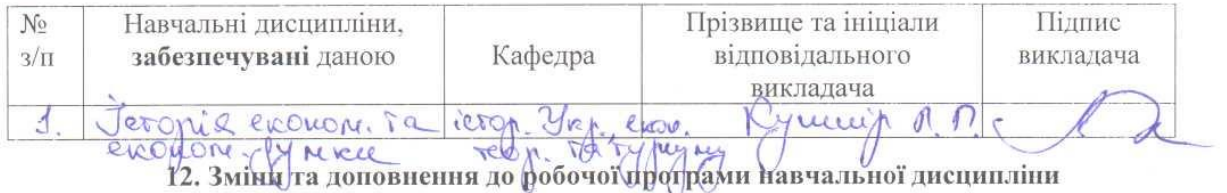 № з/п Навчальні дисципліни, забезпечувані даною Кафедра Прізвище та ініціали відповідального викладача Підпис викладача
1. Історія економ. та істор. Укр., екон. Кушнір Л. П.
економ. думки теор. та туризму
12. Зміни та доповнення до робочої програми навчальної дисципліни